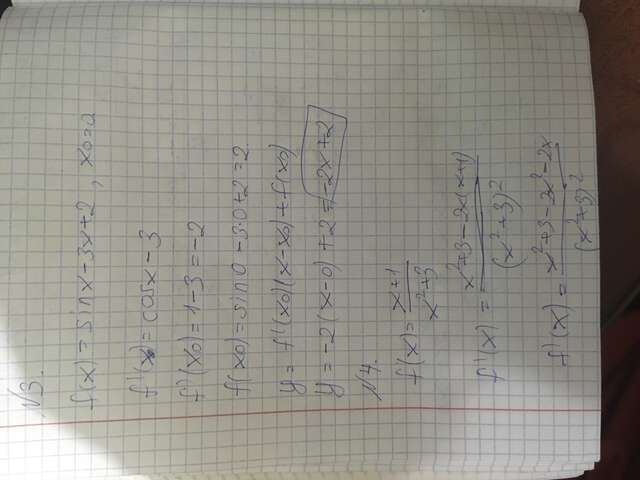 №3.
f(x) = sinx - 3x + 2, x₀ = 0
f'(x) = cosx - 3
f'(x₀) = 1 - 3 = -2
f(x₀) = sin0 - 3·0 + 2 = 2
y = f'(x₀)(x - x₀) + f(x₀)
y = -2(x - 0) + 2 = -2x + 2
№4.
f(x) = (x+1)/(x²+3)
f'(x) = (x²+3-2x(x+1))/(x²+3)²
f'(x) = (x²+3-2x²-2x)/(x²+3)²